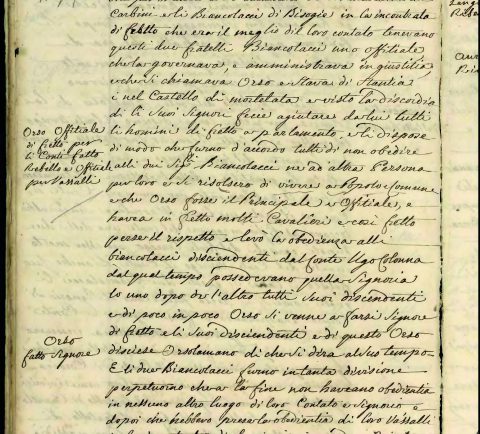 Carbini e li Biancolacci di Bisogie in la incontrata
di fretto che era il meglio di loro contato tenevano
questi due fratelli Biancolacci uno offitiale
che la governava, e amministrava in giustitia
e che si chiamava Orso e stava di stantia
i nel Castello di mortelata e visto la discordia
di li Suoi Signori fecie agiutare da lui tutti
li homini di fretto a parlamento, e li dispose
di modo che furno d'accordo tutti di non obedire
alli dui Sig.ri Biancolacci ne ad altra Persona
per loro e si risolsero di vivere a Popolo e Comune
e che Orso fosse il Principale e Offitiale, e
havea in fretto molti Cavalieri e cosi fretto
perse il rispetto e levò la obedienza alli
biancolacci discienденti del Conte Ugo Colonna
dal qual tempo possedevano quella Signoria
lo uno dopo de l'altro tutti Suoi discendenti
e di poco in poco Orso si venne a farsi Signore
di fretto e li Suoi disciendenti e di questo Orso
disciese Orsolamano di che si dira al suo tempo
E li due Biancolacci furno in tanta divisione
perpetuorno che a la fine non haveano obedientia
in nessuno altro luogo di loro Contato e Signorie e
dopoi che hebbero presa la obedientia di loro Vassalli
Orso Offitiale
di fretto per
li Conti fatto
Rebello e Offitiale
per Vassalli
Orso
fatto Signore